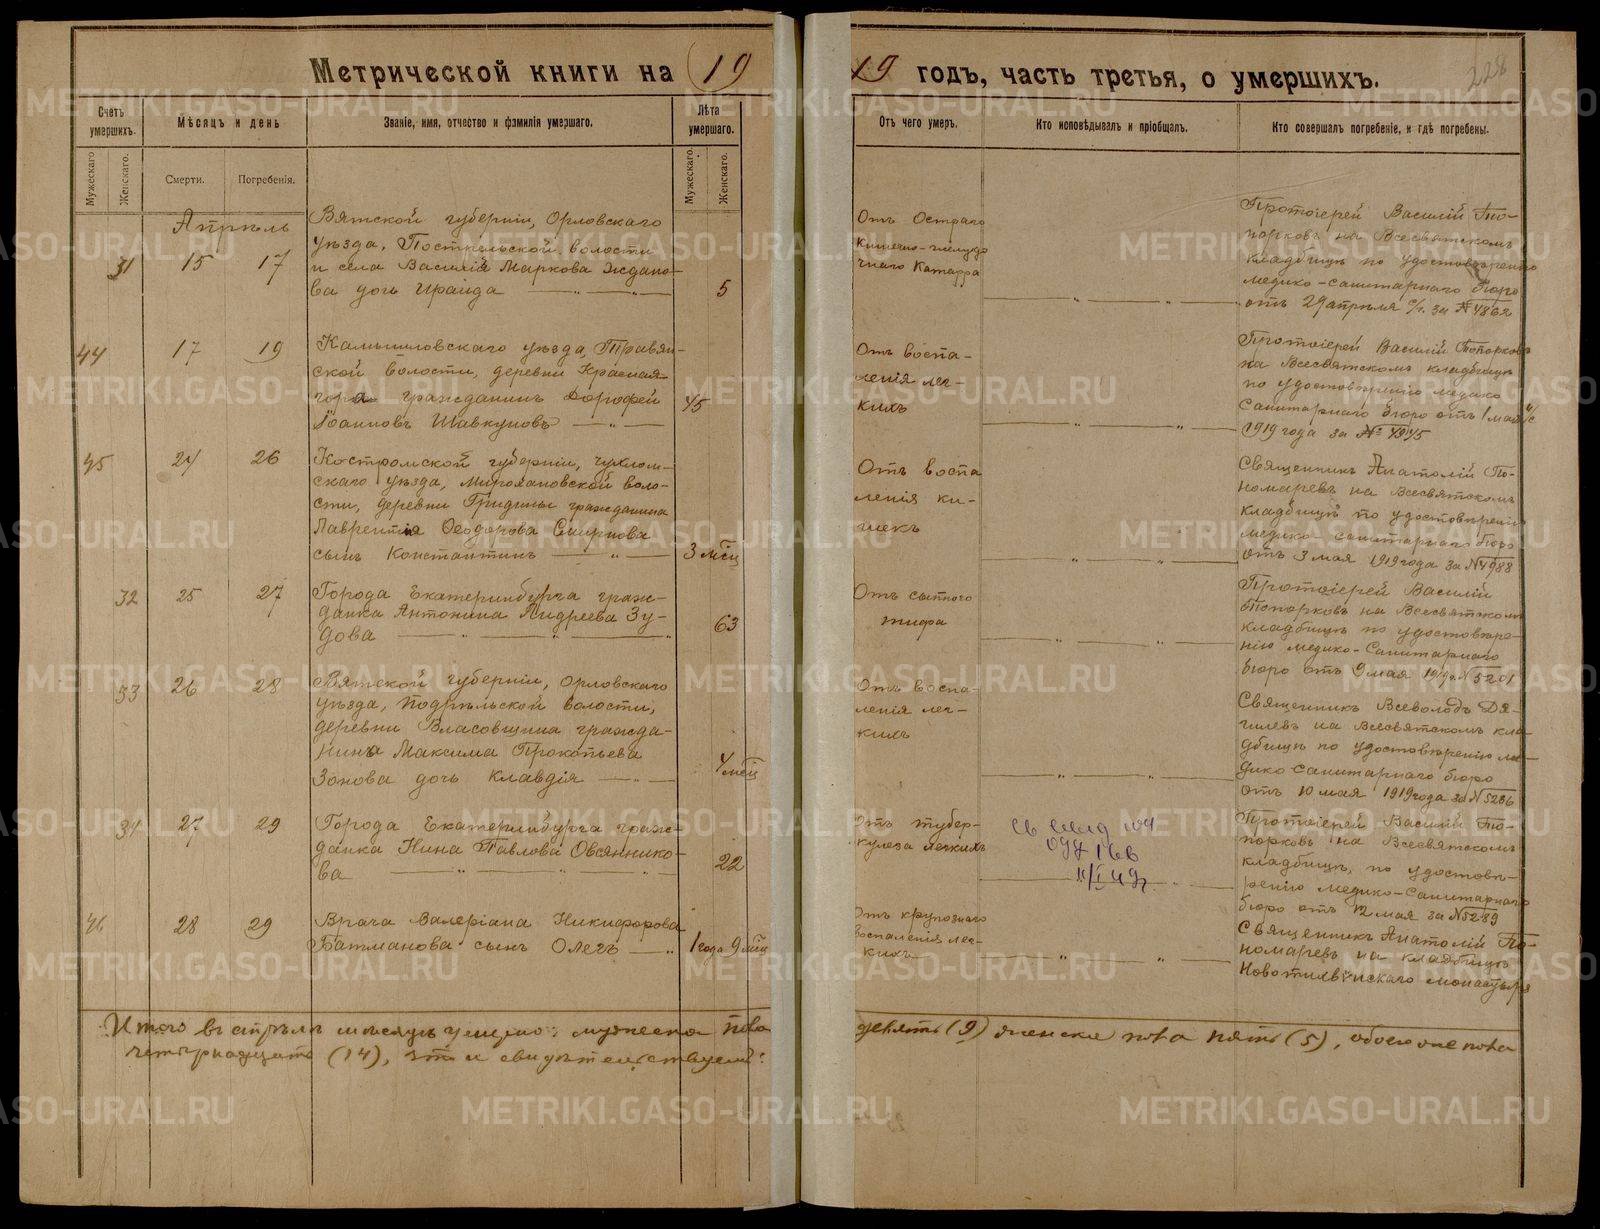 Метрической книги на 1919 годъ, часть третья, о умершихъ.
228
Счетъ умершихъ.
Мѣсяцъ и день
Званіе, имя, отчество и фамилія умершаго.
Лѣта умершаго.
Отъ чего умеръ.
Кто исповѣдывалъ и пріобщалъ.
Кто совершалъ погребеніе, и гдѣ погребены.
Мужескаго.
Женскаго.
Смерти.
Погребенія.
Мужескаго.
Женскаго.
Апрѣль
31 15 17
Вятской губерніи, Орловскаго
уѣзда, волости
и села Василія Маркова Ждано-
ва дочь Ираида
5
Отъ Остраго
кишечно-желудо
чнаго Катарра
Протоіерей Василій То-
порковъ на Всесвятскомъ
кладбищѣ по удостовѣренію
медико-санитарнаго бюро
отъ 29 апрѣля с/г. за № 4862
44 17 19
Камышловскаго уѣзда, Травян-
ской волости, деревни Красная
гора гражданинъ Дорофей
Іоанновъ Шавкуновъ
45
Отъ воспа-
ленія лег-
кихъ
Протоіерей Василій Топорковъ
на Всесвятскомъ кладбищѣ
по удостовѣренію медико
Санитарнаго бюро отъ 1 мая н/с
1919 года за № 4945
45 24 26
Костромской губерніи, Чухлом-
скаго уѣзда, Мирохановской воло-
сти, деревни Гридины гражданина
Лаврентія Ѳеодорова Смирнова
сынъ Константинъ
3 мѣц
Отъ воспа
ленія ки-
шекъ
Священникъ Анатолій По-
номаревъ на Всесвятскомъ
кладбищѣ по удостовѣренію
медико-санитарнаго бюро
отъ 3 мая 1919 года за № 4988
32 25 27
Города Екатеринбурга граж-
данка Антонина Андреева Зу-
дова
63
Отъ сыпного
тифа
Протоіерей Василій
Топорковъ на Всесвятскомъ
кладбищѣ по удостовѣре-
нію медико-Санитарнаго
бюро отъ 9 мая 1919 г. № 5201
33 26 28
Вятской губерніи, Орловскаго
уѣзда, Подрѣльской волости,
деревни Власовщина гражда-
нина Максима Прокопьева
Зонова дочь Клавдія
4 мѣц
Отъ воспа-
ленія лег-
кихъ
Священникъ Всеволодъ Дя-
гилевъ на Всесвятскомъ кла
дбищѣ по удостовѣренію ме-
дико санитарнаго бюро
отъ 10 мая 1919 года за № 5236
34 27 29
Города Екатеринбурга граж-
данка Нина Павлова Овсяннико-
ва
22
Отъ тубер-
кулеза легкихъ
Протоіерей Василій То-
порковъ на Всесвятскомъ
кладбищѣ, по удостовѣ-
ренію медико-Санитарнаго
бюро отъ 12 мая за № 5289
46 28 29
Врача Валеріана Никифорова
Батманова сынъ Олегъ
1 года 9 мѣц
Отъ крупознаго
воспаленія лег-
кихъ
Священникъ Анатолій По-
номаревъ на кладбищѣ
Новотихвинскаго монастыря
Итого въ апрѣлѣ мѣсяцѣ умерло: мужеска пола девять (9) женска пола пять (5), обоего же пола
четырнадцать (14), что и свидѣтельствуемъ:
METRIKI.GASO-URAL.RU